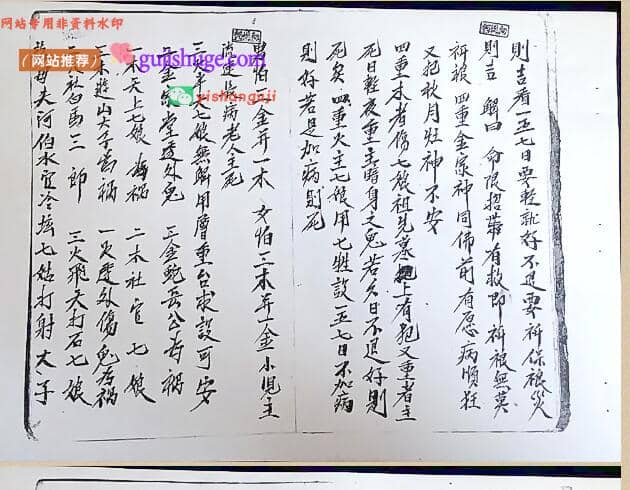 网站专用非资料水印
（网站推荐）
gupshuge.com
yishangnji
則吉看一五七日要輕就好不退要祈保禳災
則吉 解曰 命限招 有救即祈禳無莫
祈禳四重金家神同佛前有愿病順狂
又犯秋月灶神不安
四重木者傷七娘祖先塚上有犯又重者主
死日輕夜重時身之鬼若久日不退好則
死矣 四重火主七娘用七牲設一五七日不加病
則好若是加病則死
男怕 金并一木 女怕二木并一金 小児主
病老人主死
三 七娘無解用層重台求設可安
三金家堂透外鬼 三金蛇岳公為禍
一木天上七娘為禍 二木社官七娘
一木遊山大子為禍 一火透外傷鬼為禍
社白馬三郎 三火飛天打石七娘
夫河伯水官冷壇七姑打射大子